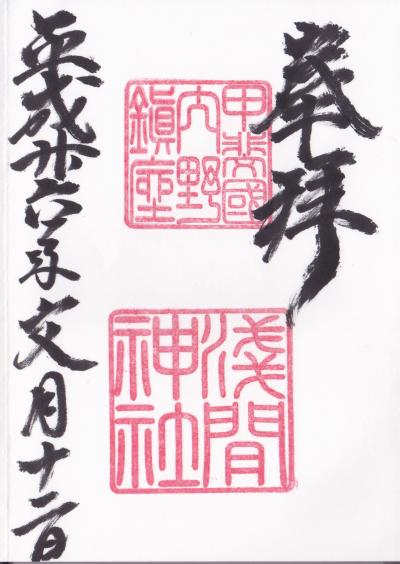 奉拝
甲斐國
内野
鎭座
淺間
神社
平成廿六年文月十二日